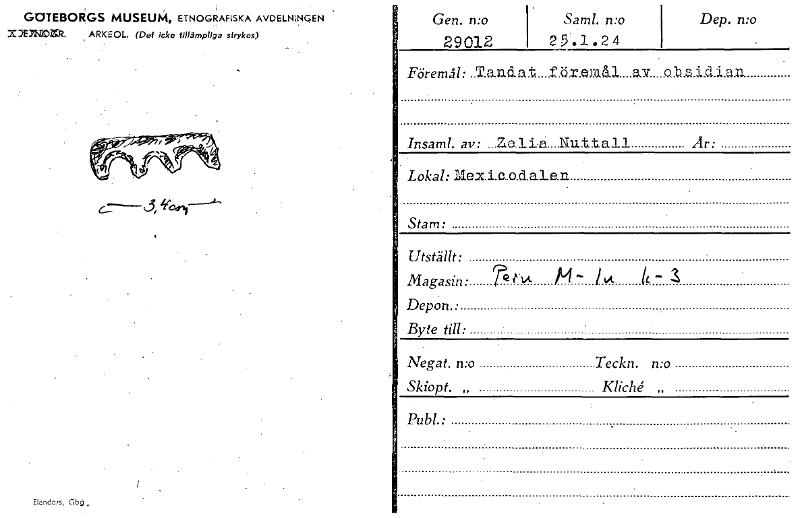 GÖTEBORGS MUSEUM, ETNOGRAFISKA AVDELNINGEN
ARKEOL. (Det icke tillämpliga strykes)
3,4cm
Elanders, Gbg.
Gen. n:o Saml. n:o Dep. n:o
29012 25.1.24
Föremål: Tandat föremål av obsidian
Insaml. av: Zelia Nuttall År:
Lokal: Mexicodalen
Stam:
Utställt:
Magasin: Peru M- k-3
Depon.:
Byte till:
Negat. n:o Teckn. n:o
Skiopt. „ Kliché „
Publ.: